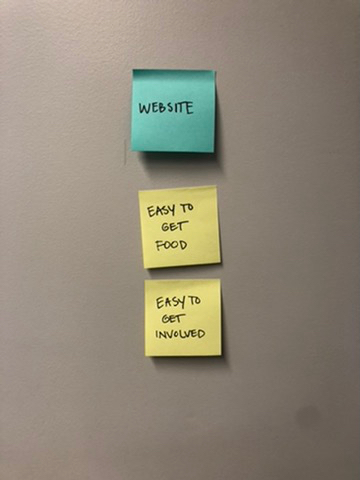 WEBSITE
EASY TO
GET
FOOD
EASY TO
GET
INVOLVED